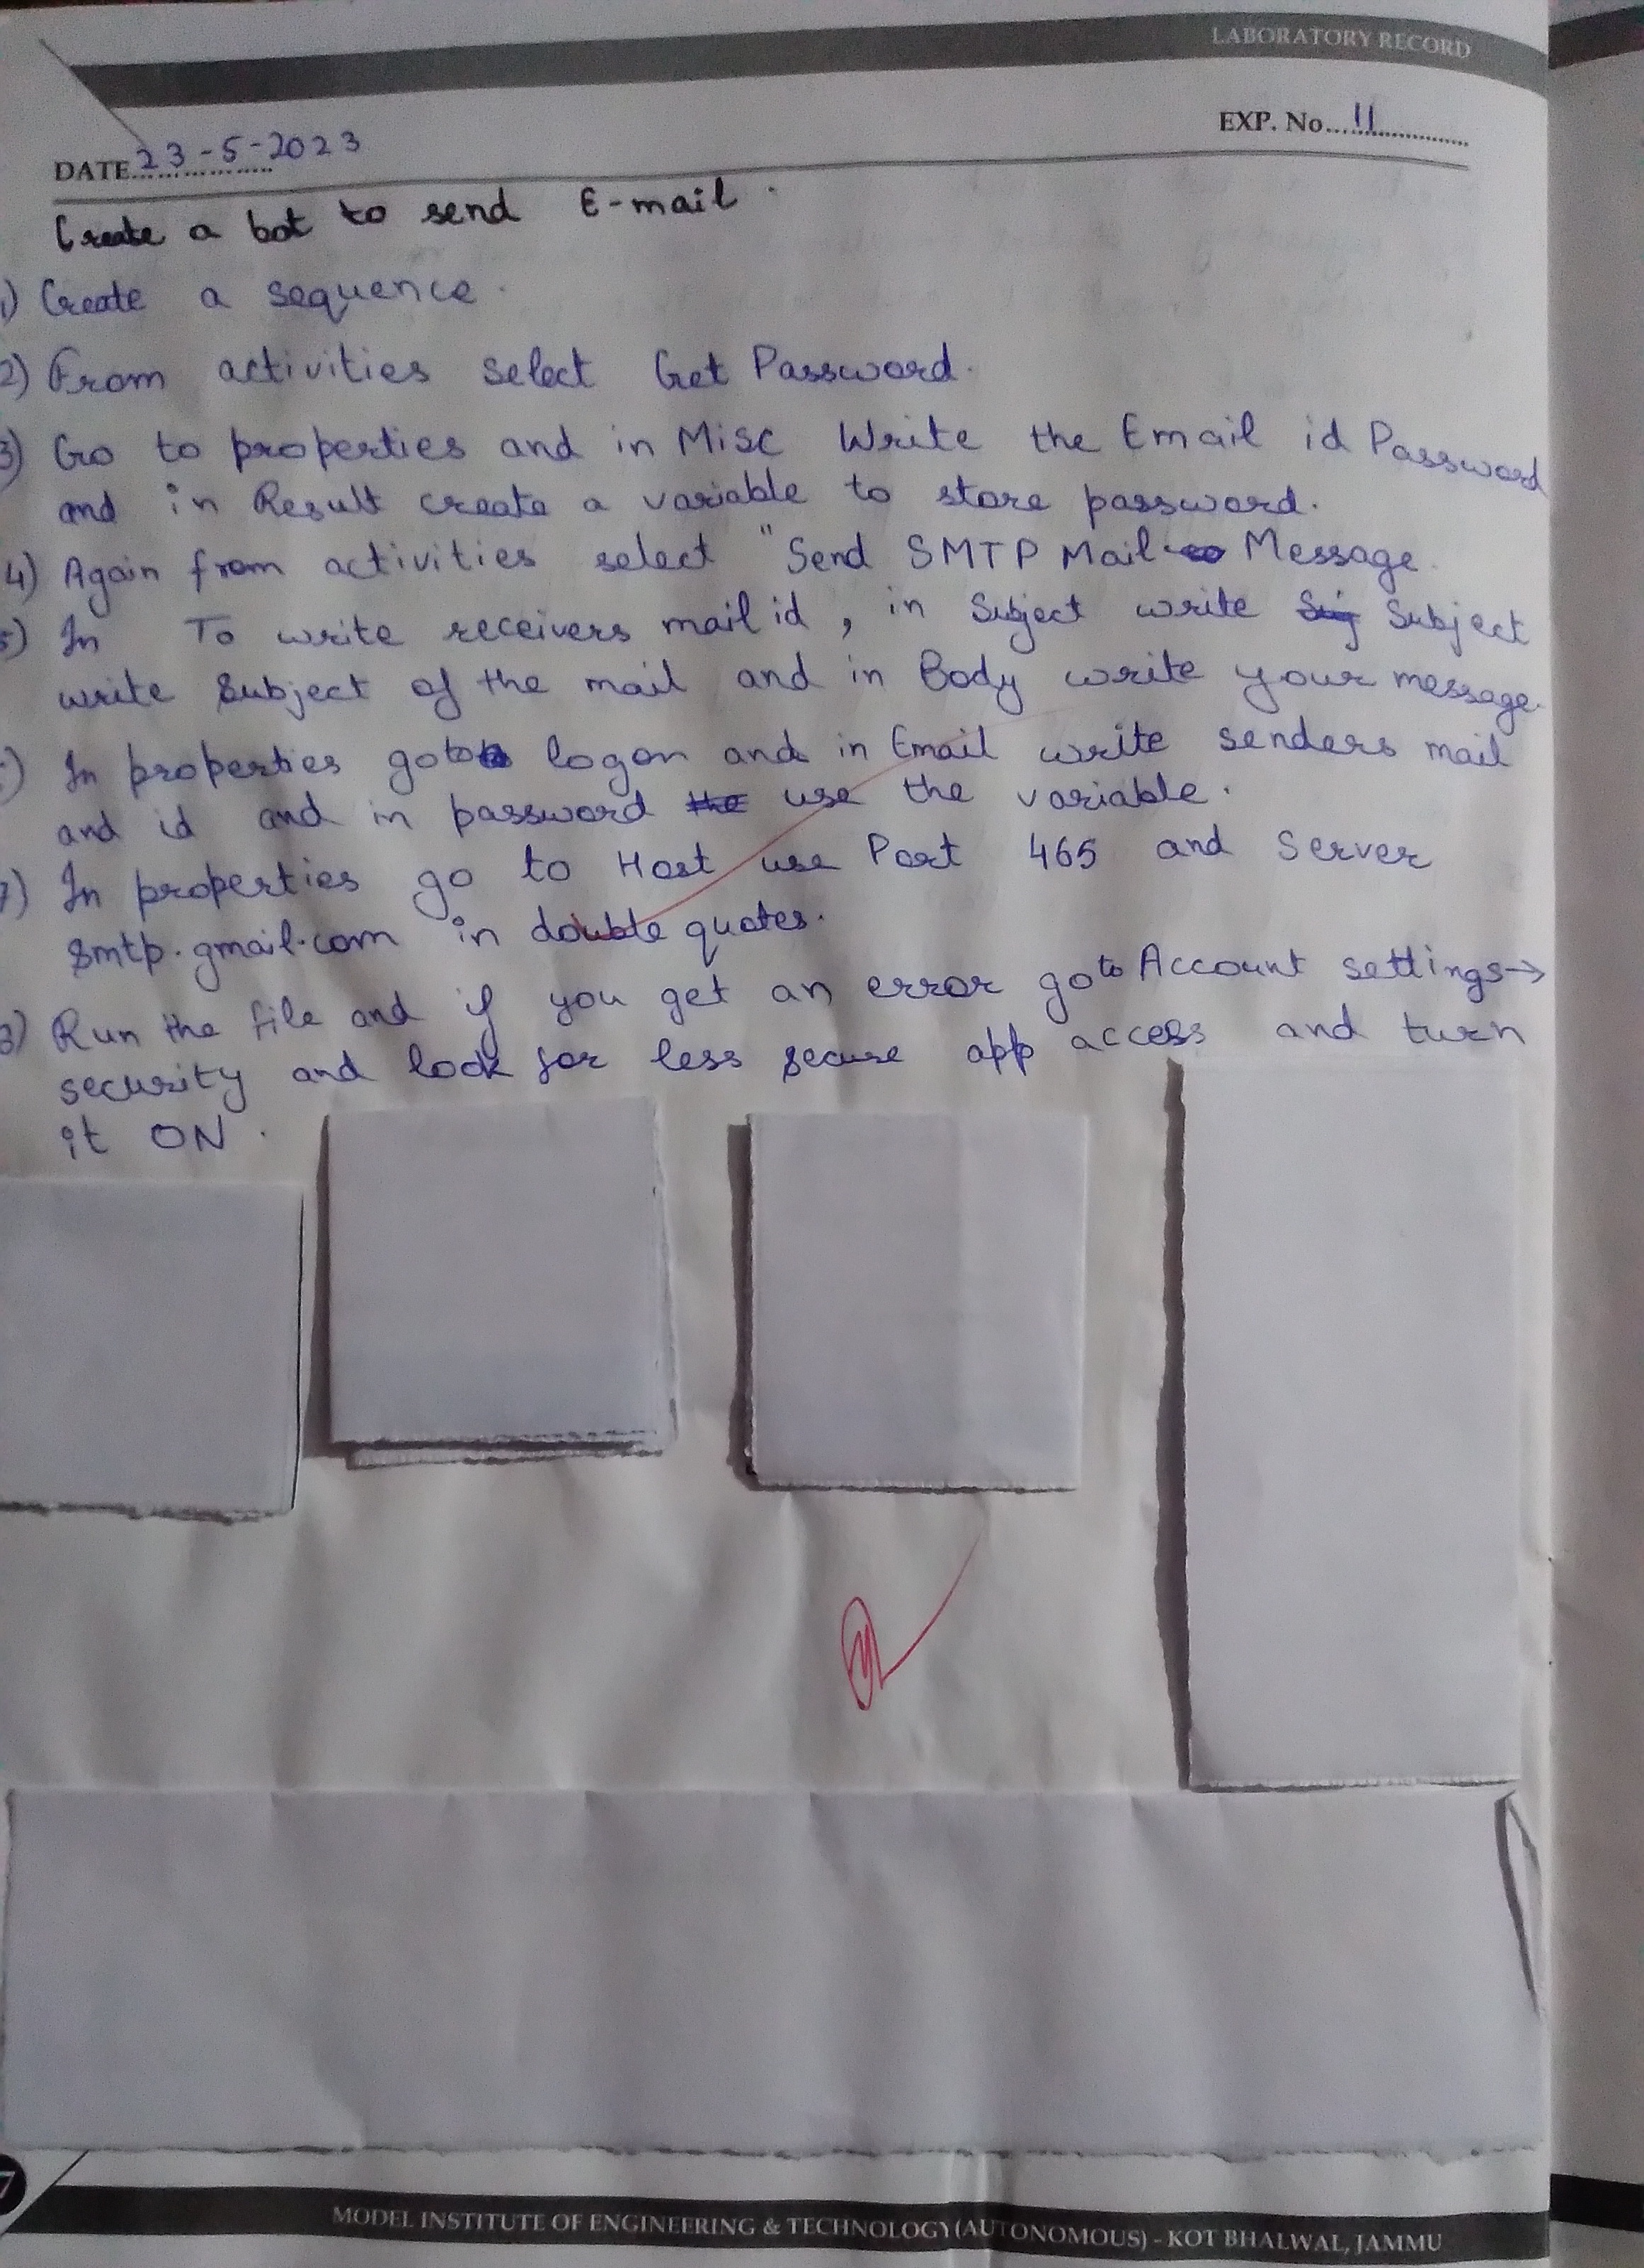 LABORATORY RECORD
EXP. No...11
DATE 23-5-2023
Create a bot to send E-mail.
1) Create a sequence.
2) From activities select Get Password.
3) Go to properties and in Misc Write the Email id Password
and in Result create a variable to store password.
4) Again from activities select "Send SMTP Mail Message.
5) In To write receivers mail id, in Subject write Subject
write Subject of the mail and in Body write your message.
) In properties goto logon and in Email write senders mail
and id and in password use the variable.
7) In properties go to Host use Port 465 and Server
smtp.gmail.com in double quotes.
8) Run the file and if you get an error go to Account settings→
security and look for less secure app access and turn
it ON.
7
MODEL INSTITUTE OF ENGINEERING & TECHNOLOGY (AUTONOMOUS) - KOT BHALWAL, JAMMU